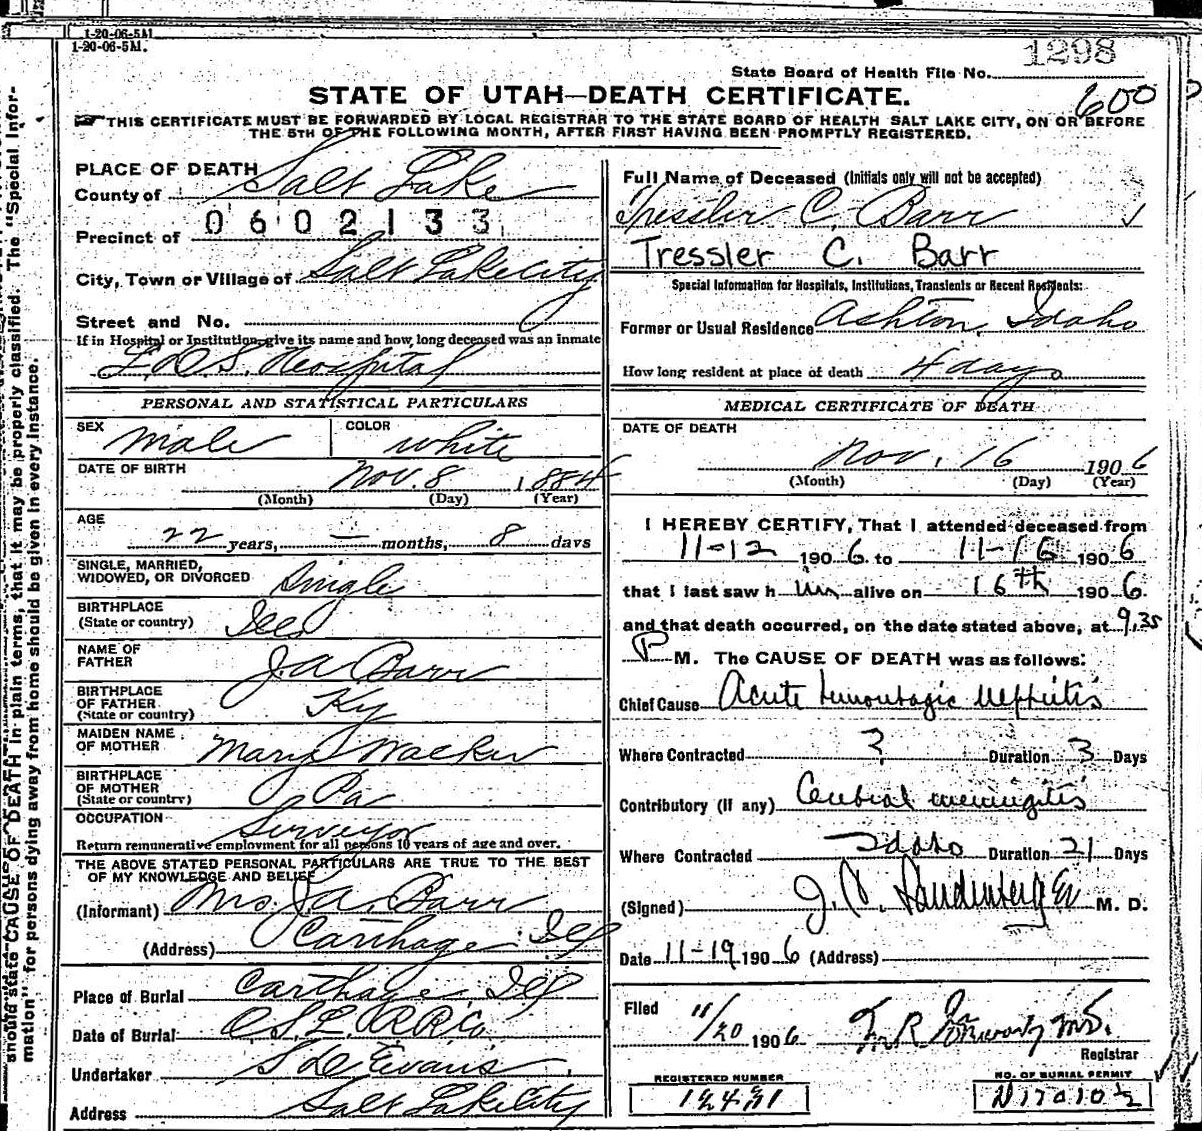 1-20-06-5M
1-20-06-5M.
1298
State Board of Health File No.
600
STATE OF UTAH—DEATH CERTIFICATE.
THIS CERTIFICATE MUST BE FORWARDED BY LOCAL REGISTRAR TO THE STATE BOARD OF HEALTH SALT LAKE CITY, ON OR BEFORE
THE 5TH OF THE FOLLOWING MONTH, AFTER FIRST HAVING BEEN PROMPTLY REGISTERED.
should state CAUSE OF DEATH in plain terms, that it may be properly classified. The "Special Infor-
mation" for persons dying away from home should be given in every instance.
PLACE OF DEATH
County of Salt Lake
0602133
Precinct of
City, Town or Village of Salt Lake City
Street and No.
If in Hospital or Institution, give its name and how long deceased was an inmate
L.D.S. Hospital
PERSONAL AND STATISTICAL PARTICULARS
SEX male COLOR white
DATE OF BIRTH Nov. 8 1884
(Month) (Day) (Year)
AGE
22 years, — months, 8 days
SINGLE, MARRIED,
WIDOWED, OR DIVORCED Single
BIRTHPLACE
(State or country) Ill
NAME OF
FATHER J. A. Barr
BIRTHPLACE
OF FATHER
(State or country) Ky
MAIDEN NAME
OF MOTHER Mary Walker
BIRTHPLACE
OF MOTHER
(State or country) Pa
OCCUPATION Surveyor
Return remunerative employment for all persons 10 years of age and over.
THE ABOVE STATED PERSONAL PARTICULARS ARE TRUE TO THE BEST
OF MY KNOWLEDGE AND BELIEF
(Informant) Mrs. J. A. Barr
(Address) Carthage Ill
Place of Burial Carthage, Ill
Date of Burial O.S.L. R.R. Co.
Undertaker S D Evans
Address Salt Lake City
Full Name of Deceased (Initials only will not be accepted)
Tressler C. Barr ✓
Tressler C. Barr
Special Information for Hospitals, Institutions, Transients or Recent Residents:
Former or Usual Residence Ashton, Idaho
How long resident at place of death 4 days
MEDICAL CERTIFICATE OF DEATH
DATE OF DEATH
Nov. 16 1906
(Month) (Day) (Year)
I HEREBY CERTIFY, That I attended deceased from
11-12 1906 to 11-16 1906
that I last saw h im alive on 16th 1906.
and that death occurred, on the date stated above, at 9.35
P M. The CAUSE OF DEATH was as follows:
Chief Cause Acute hemorragic nephritis
Where Contracted ? Duration 3 Days
Contributory (if any) Cerebral meningitis
Where Contracted Idaho Duration 21 Days
(Signed) J. C. Landenberger M. D.
Date 11-19 1906 (Address)
Filed 11/20 1906
M.D.
Registrar
REGISTERED NUMBER
NO. OF BURIAL PERMIT